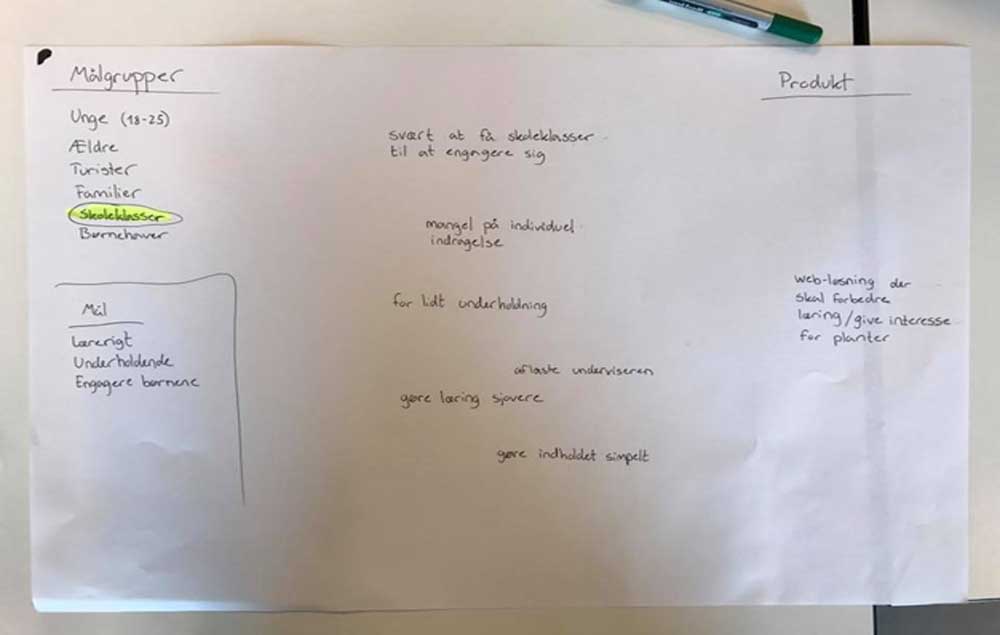 Målgrupper
Unge (18-25)
Ældre
Turister
Familier
Skoleklasser
Børnehaver
Mål
Lærerigt
Underholdende
Engagere børnene
svært at få skoleklasser
til at engagere sig
mangel på individuel
indragelse
for lidt underholdning
aflaste underviseren
gøre læring sjovere
gøre indholdet simpelt
Produkt
web-løsning der
skal forbedre
læring/give interesse
for planter